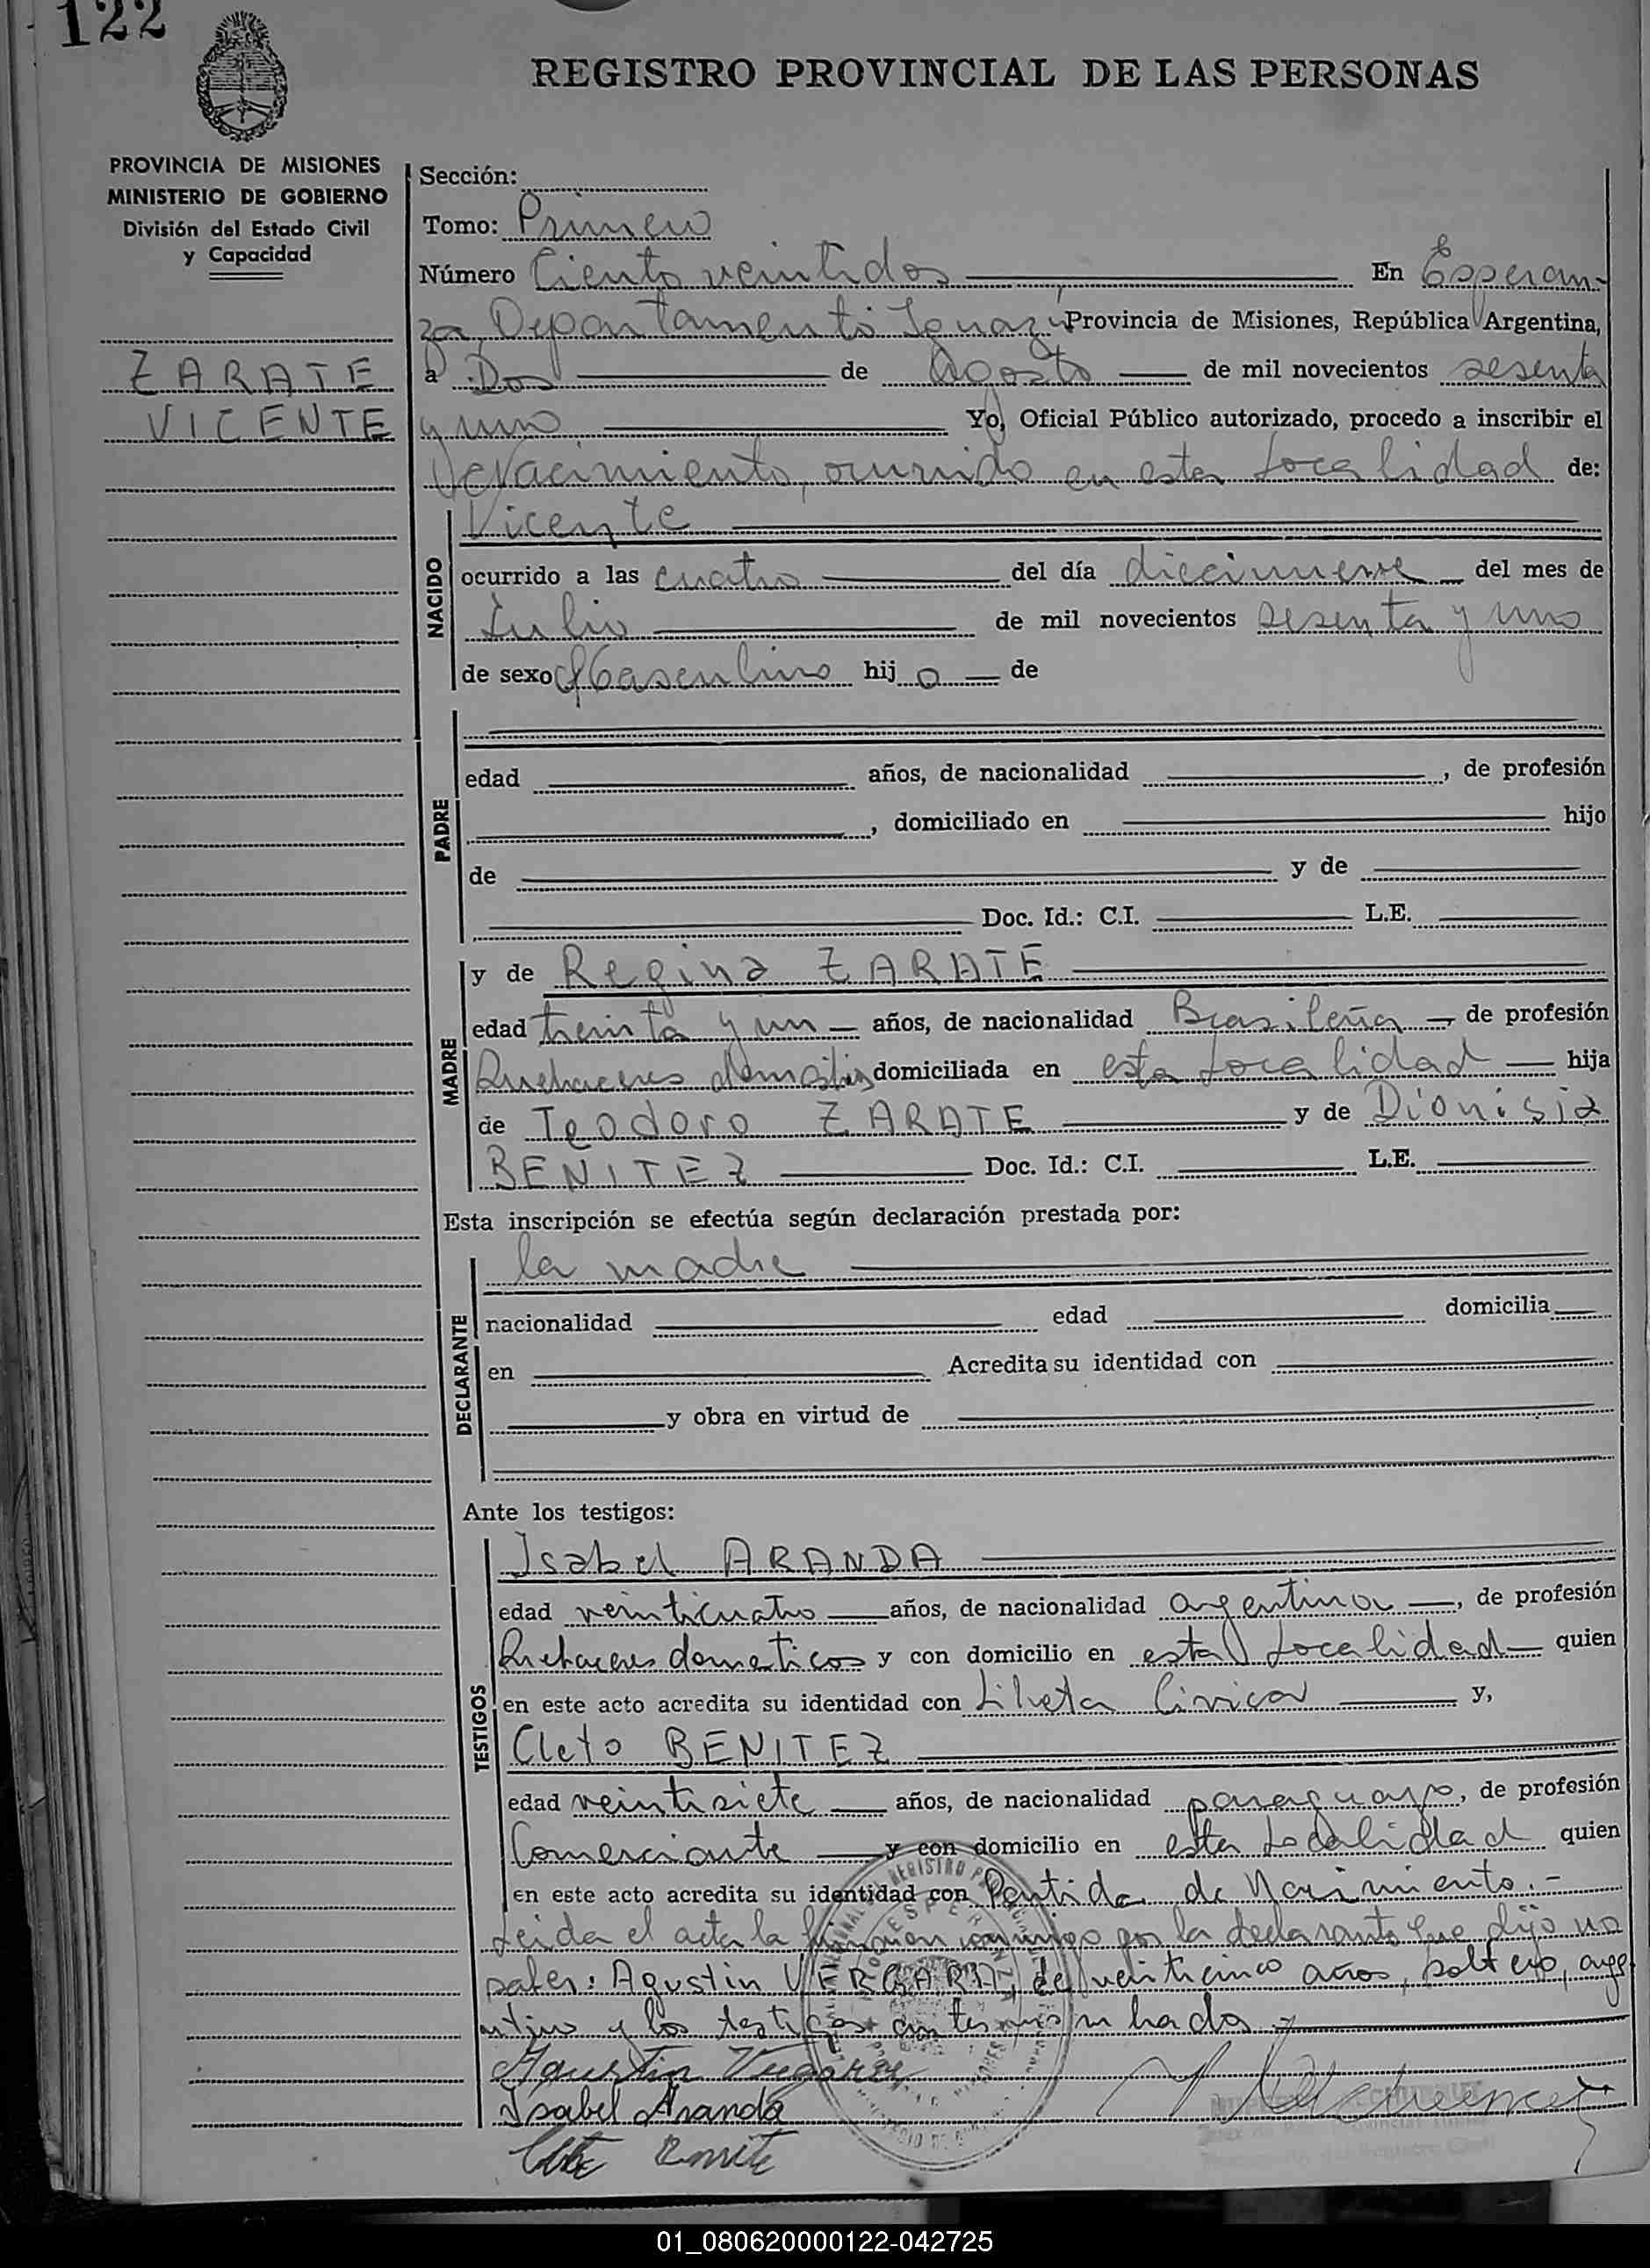 122
REGISTRO PROVINCIAL DE LAS PERSONAS
PROVINCIA DE MISIONES
MINISTERIO DE GOBIERNO
División del Estado Civil
y Capacidad
ZARATE
VICENTE
Sección:
Tomo: Primero
Número Ciento veintidos En Esperan-
za, Departamento Iguazú Provincia de Misiones, República Argentina,
a Dos de Agosto de mil novecientos sesenta
y uno Yo, Oficial Público autorizado, procedo a inscribir el
Nacimiento, ocurrido en esta Localidad de:
NACIDO
Vicente
ocurrido a las cuatro del día diecinueve del mes de
Julio de mil novecientos sesenta y uno
de sexo Masculino hij o de
PADRE
edad años, de nacionalidad , de profesión
, domiciliado en hijo
de y de
Doc. Id.: C.I. L.E.
MADRE
y de Regina ZARATE
edad treinta y un años, de nacionalidad Brasileña de profesión
Quehaceres domésticos domiciliada en esta Localidad hija
de Teodoro ZARATE y de Dionisia
BENITEZ Doc. Id.: C.I. L.E.
Esta inscripción se efectúa según declaración prestada por:
DECLARANTE
la madre
nacionalidad edad domicilia
en Acredita su identidad con
y obra en virtud de
Ante los testigos:
TESTIGOS
Isabel ARANDA
edad veinticuatro años, de nacionalidad argentina, de profesión
Quehaceres domesticos y con domicilio en esta Localidad quien
en este acto acredita su identidad con Libreta Civica y,
Cleto BENITEZ
edad veintisiete años, de nacionalidad paraguayo, de profesión
Comerciante y con domicilio en esta Localidad quien
en este acto acredita su identidad con Partida de Nacimiento.-
Leida el acta la firman conmigo por la declarante que dijo no
saber: Agustin VERGARA, de veinticinco años, soltero, arge
ntino y los testigos
Agustin Vergara
Isabel Aranda
01_080620000122-042725